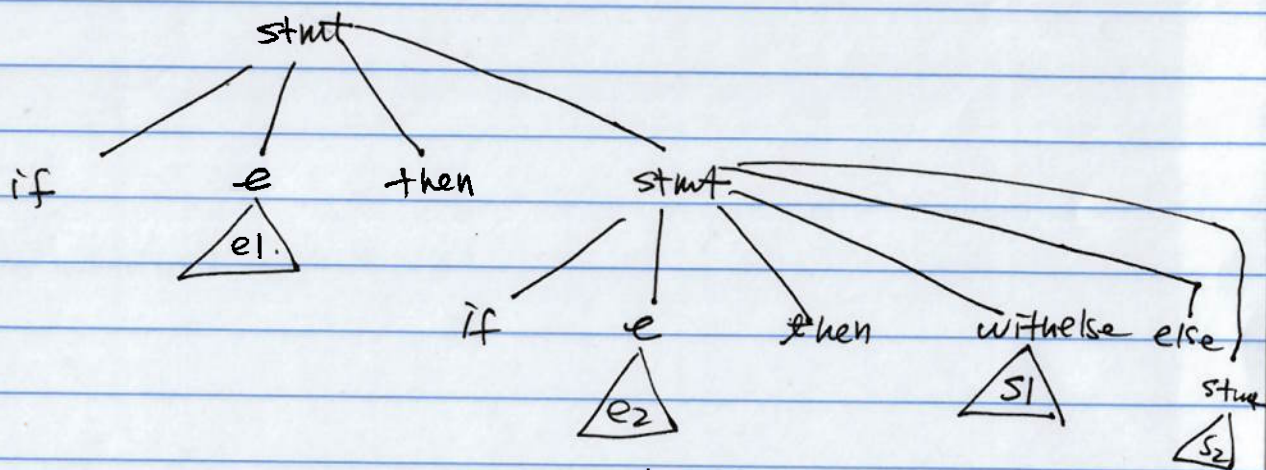 stmt
if e then stmt
e1.
if e then withelse else
e2 s1 stmt
s2